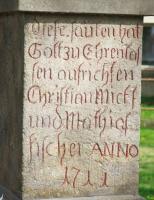 diese. säulen hat
Gott zu Ehren las
sen aufrichten
Christian Mickl
und Mathias
fischer ANNO
1711